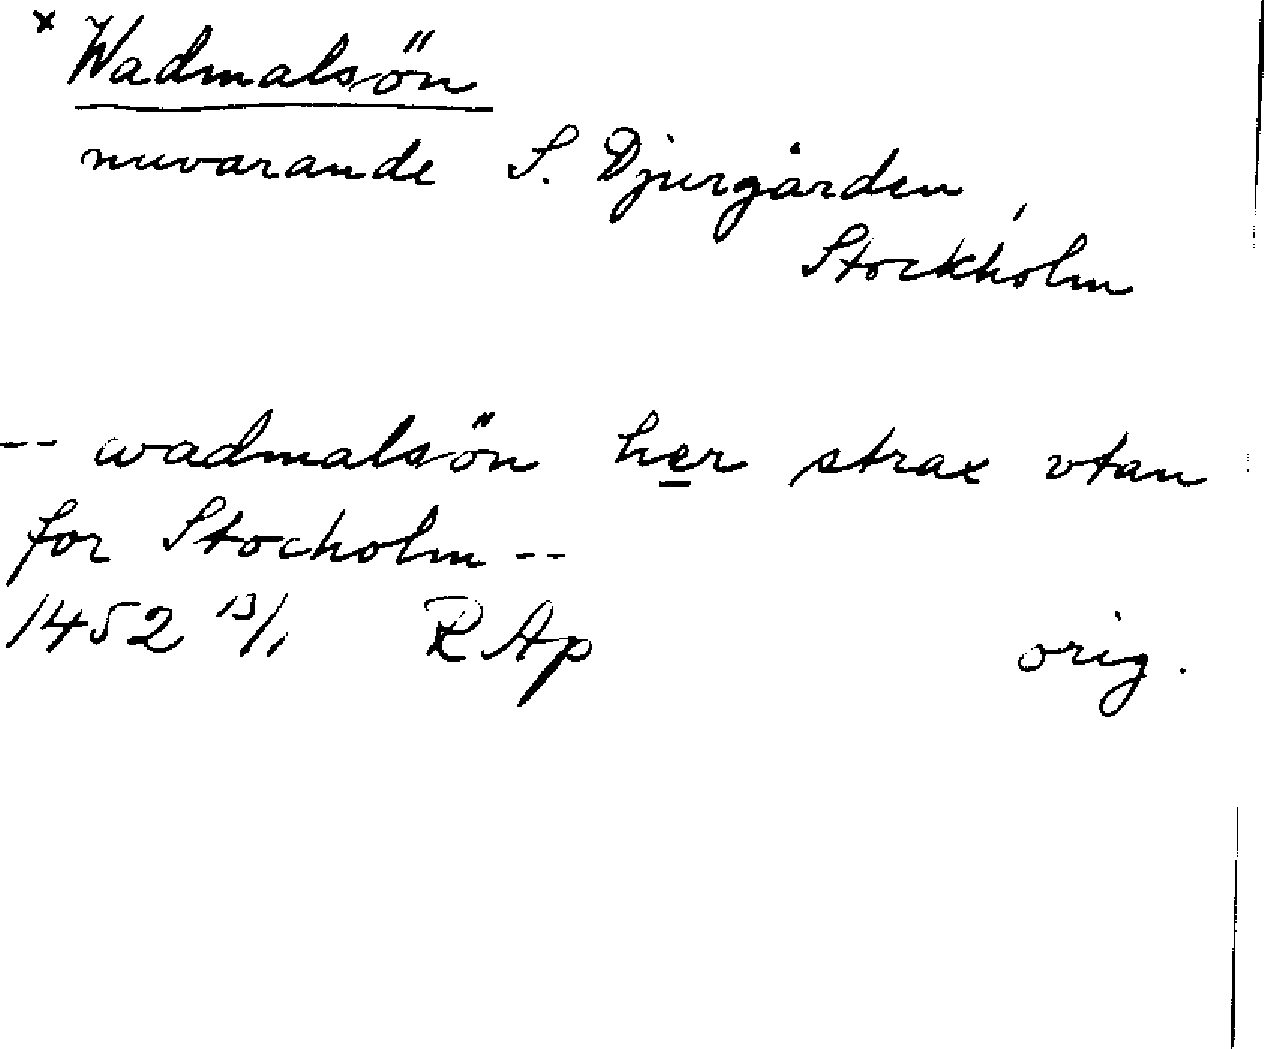 x Wadmalsön
nuvarande S. Djurgården,
Stockholm
-- wadmalsön her strax vtan
for Stocholm --
1452 13/1 RAp orig.